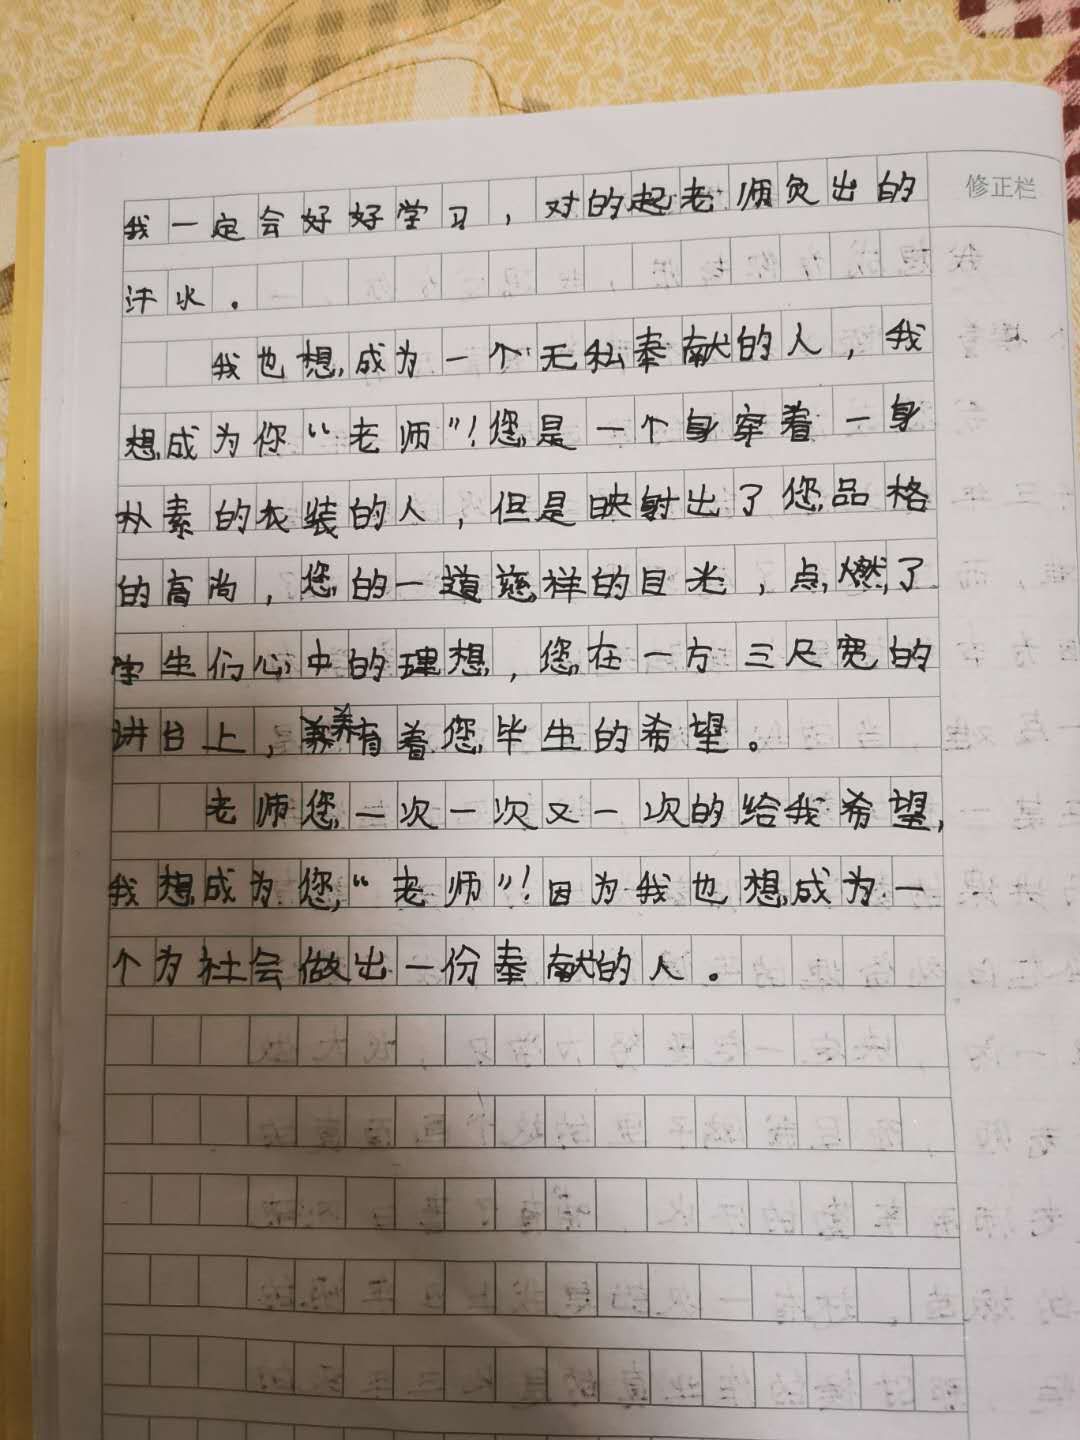 修正栏
我一定会好好学习，对的起老师负出的
汗水。
我也想成为一个无私奉献的人，我
想成为你“老师”！您是一个身穿着一身
朴素的衣装的人，但是映射出了您品格
的高尚，您的一道慈祥的目光，点燃了
学生们心中的理想，您在一方三尺宽的
讲台上，养有着您毕生的希望。
老师您一次一次又一次的给我希望，
我想成为您“老师”！因为我也想成为一
个为社会做出一份奉献的人。